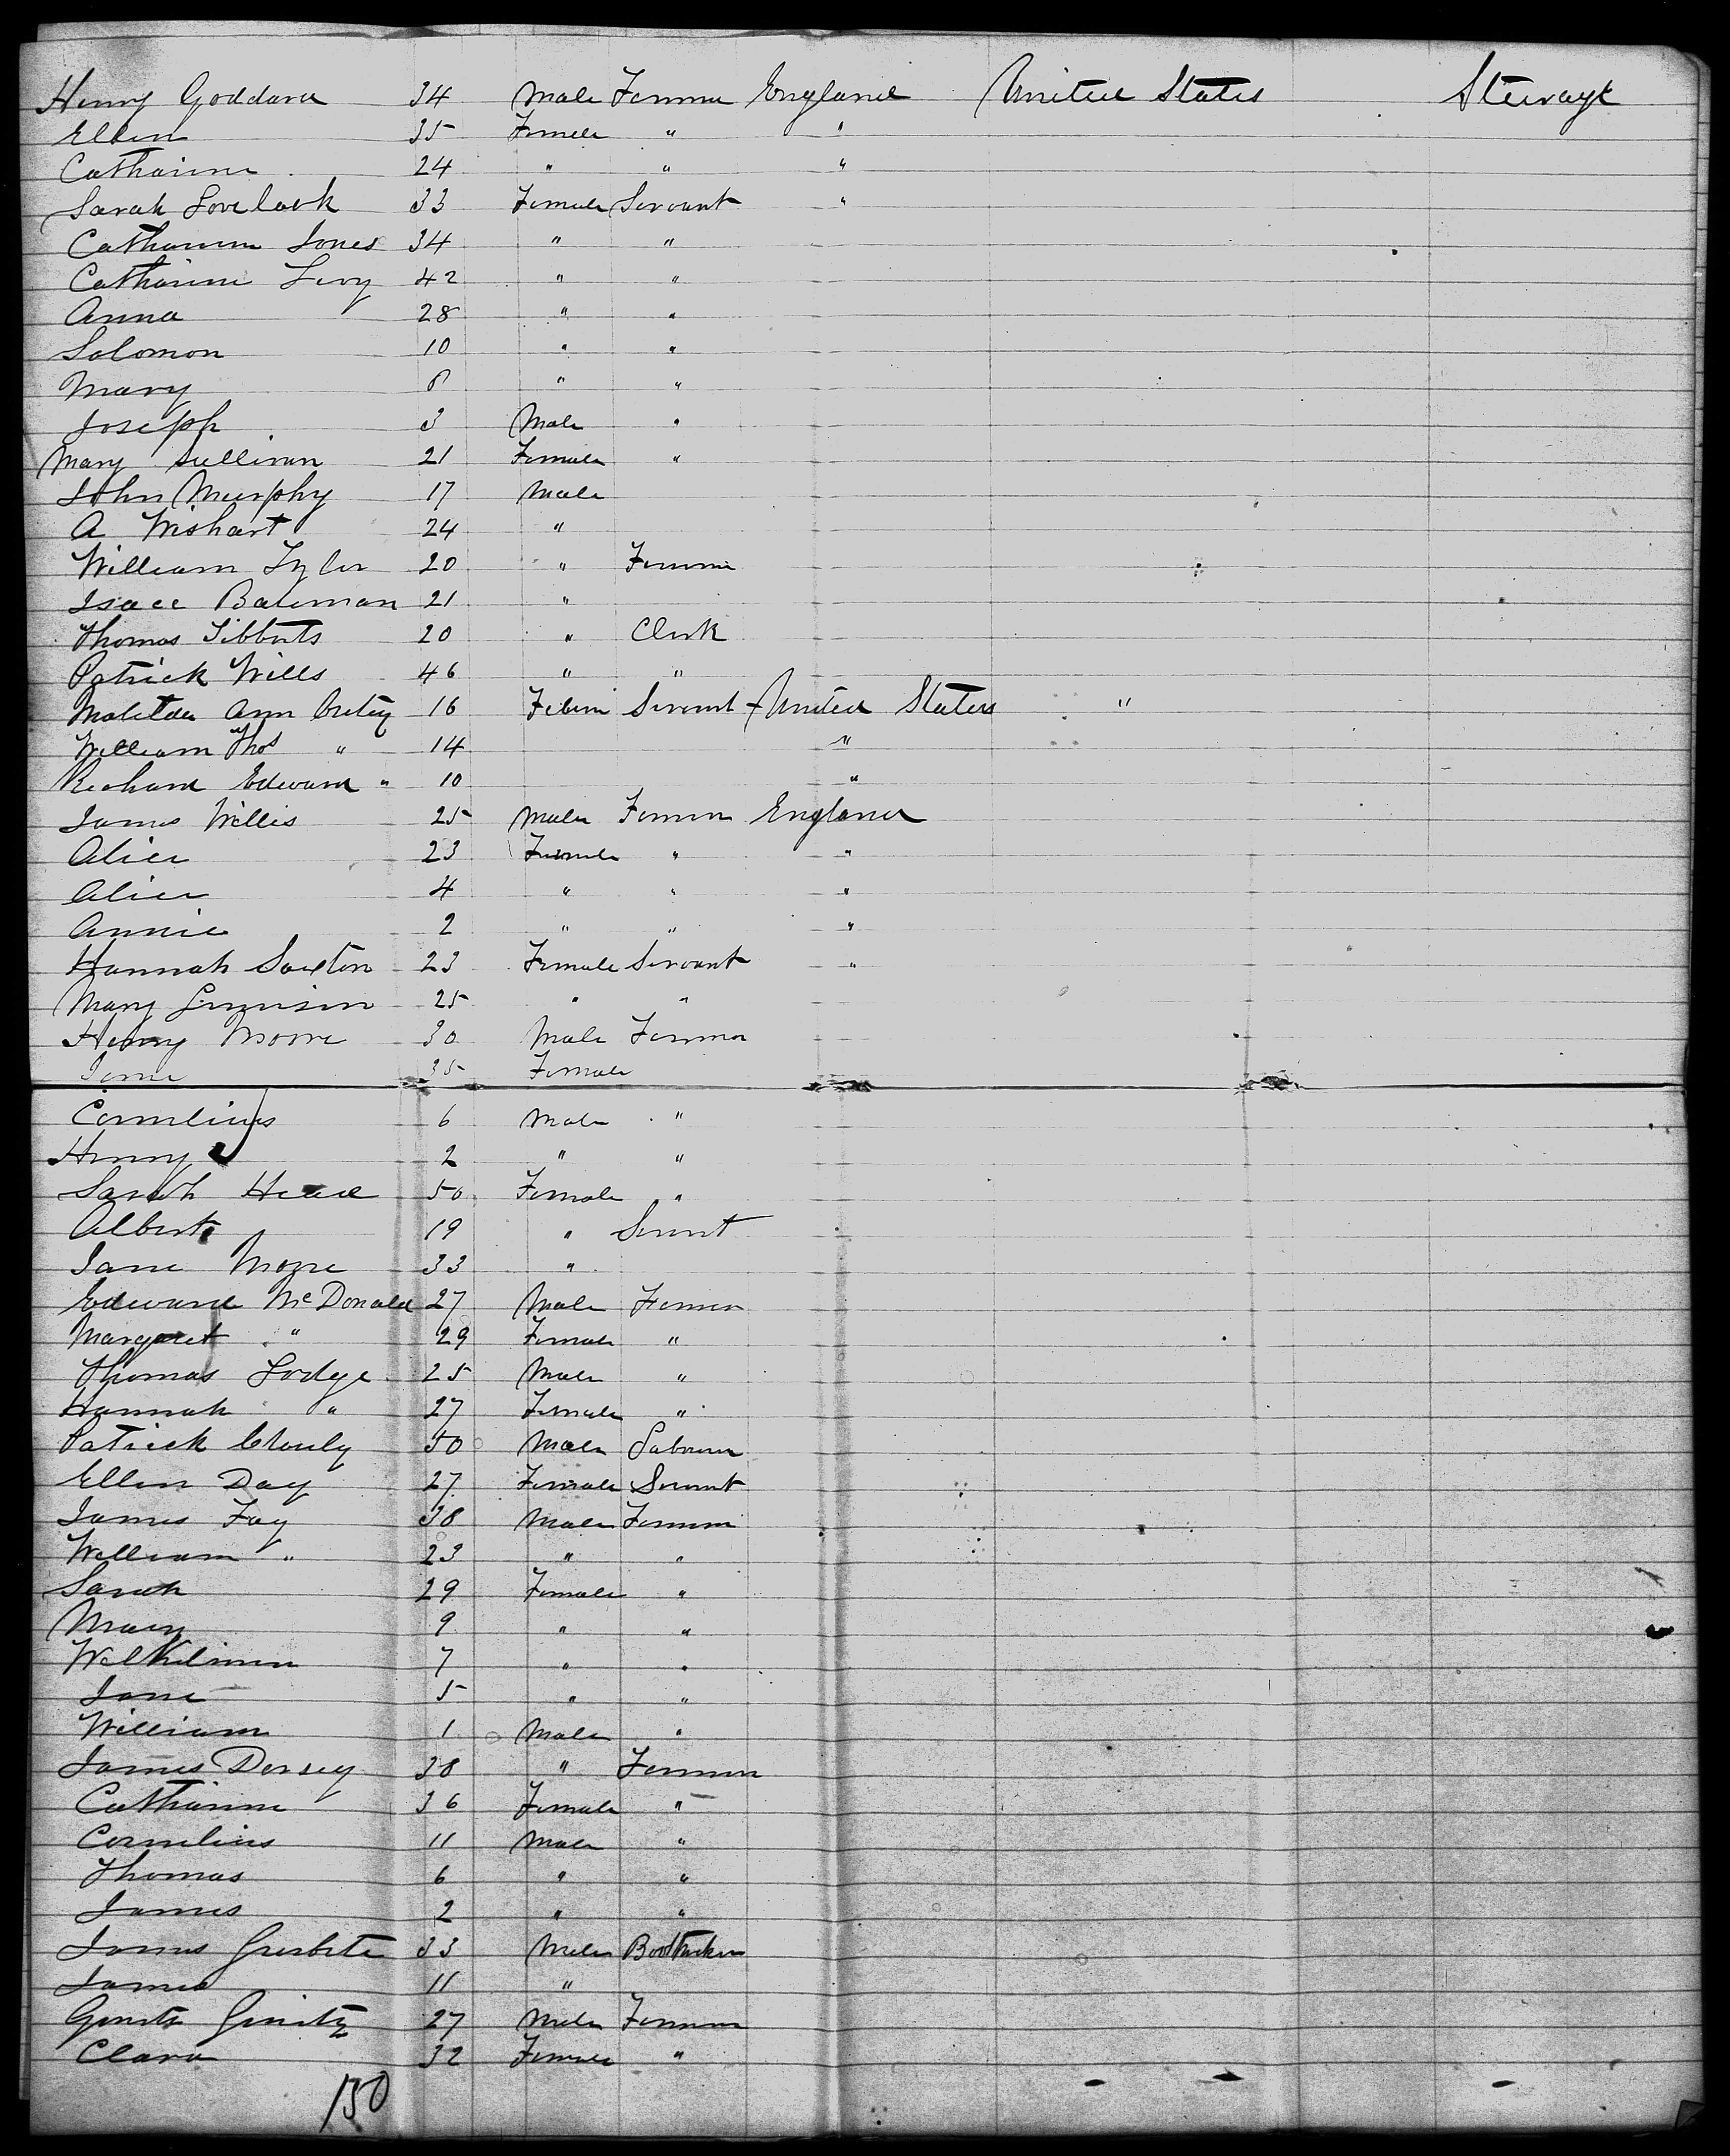 Henry Goddard 34 Male Farmer England United States Steerage
Ellen 35 Female " "
Catharine 24 " " "
Sarah Lovelock 33 Female Servant "
Catharine Jones 34 " "
Catharine Levy 42 " "
Anna 28 " "
Solomon 10 " "
Mary 8 " "
Joseph 3 Male "
Mary Sullivan 21 Female "
John Murphy 17 Male
A Wishart 24 "
William Tyler 20 " Farmer
Isaac Bateman 21 "
Thomas Tibbits 20 " Clerk
Patrick Wills 46 " "
Matilda Ann 16 Servant United States "
William Thos " 14 "
Richard Edward " 10 "
James Willis 25 Male Farmer England
Alice 23 Female " "
Alice 4 " " "
Annie 2 " " "
Hannah Saxton 23 Female Servant "
Mary 25 " "
Henry Moore 30 Male Farmer
Jane 35 Female
Cornelius 6 Male "
Henry 2 " "
Sarah Head 50 Female "
Albert 19 " Servt
Jane Moore 33 "
Edward McDonald 27 Male Farmer
Margaret " 29 Female "
Thomas Lodge 25 Male "
Hannah " 27 Female "
Patrick 50 Male Labourer
Ellen Day 27 Female Servant
James Fay 38 Male Farmer
William " 23 " "
Sarah 29 Female "
Mary 9 " "
7 " "
Jane 5 " "
William 1 Male "
James Dorsey 38 " Farmer
Catharine 36 Female "
Cornelius 11 Male "
Thomas 6 " "
James 2 " "
James 33 Male Bootmaker
James 11 "
27 Male Farmer
Clara 32 Female "
150